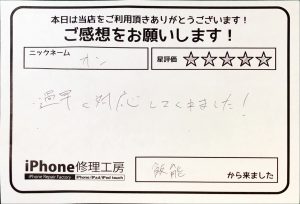 本日は当店をご利用頂きありがとうございます！
ご感想をお願いします！
ニックネーム
オン
星評価 ☆☆☆☆☆
対応してくれました！
iPhone修理工房
iPhone Repair Factory iPhone/iPad/iPod touch
飯能 から来ました